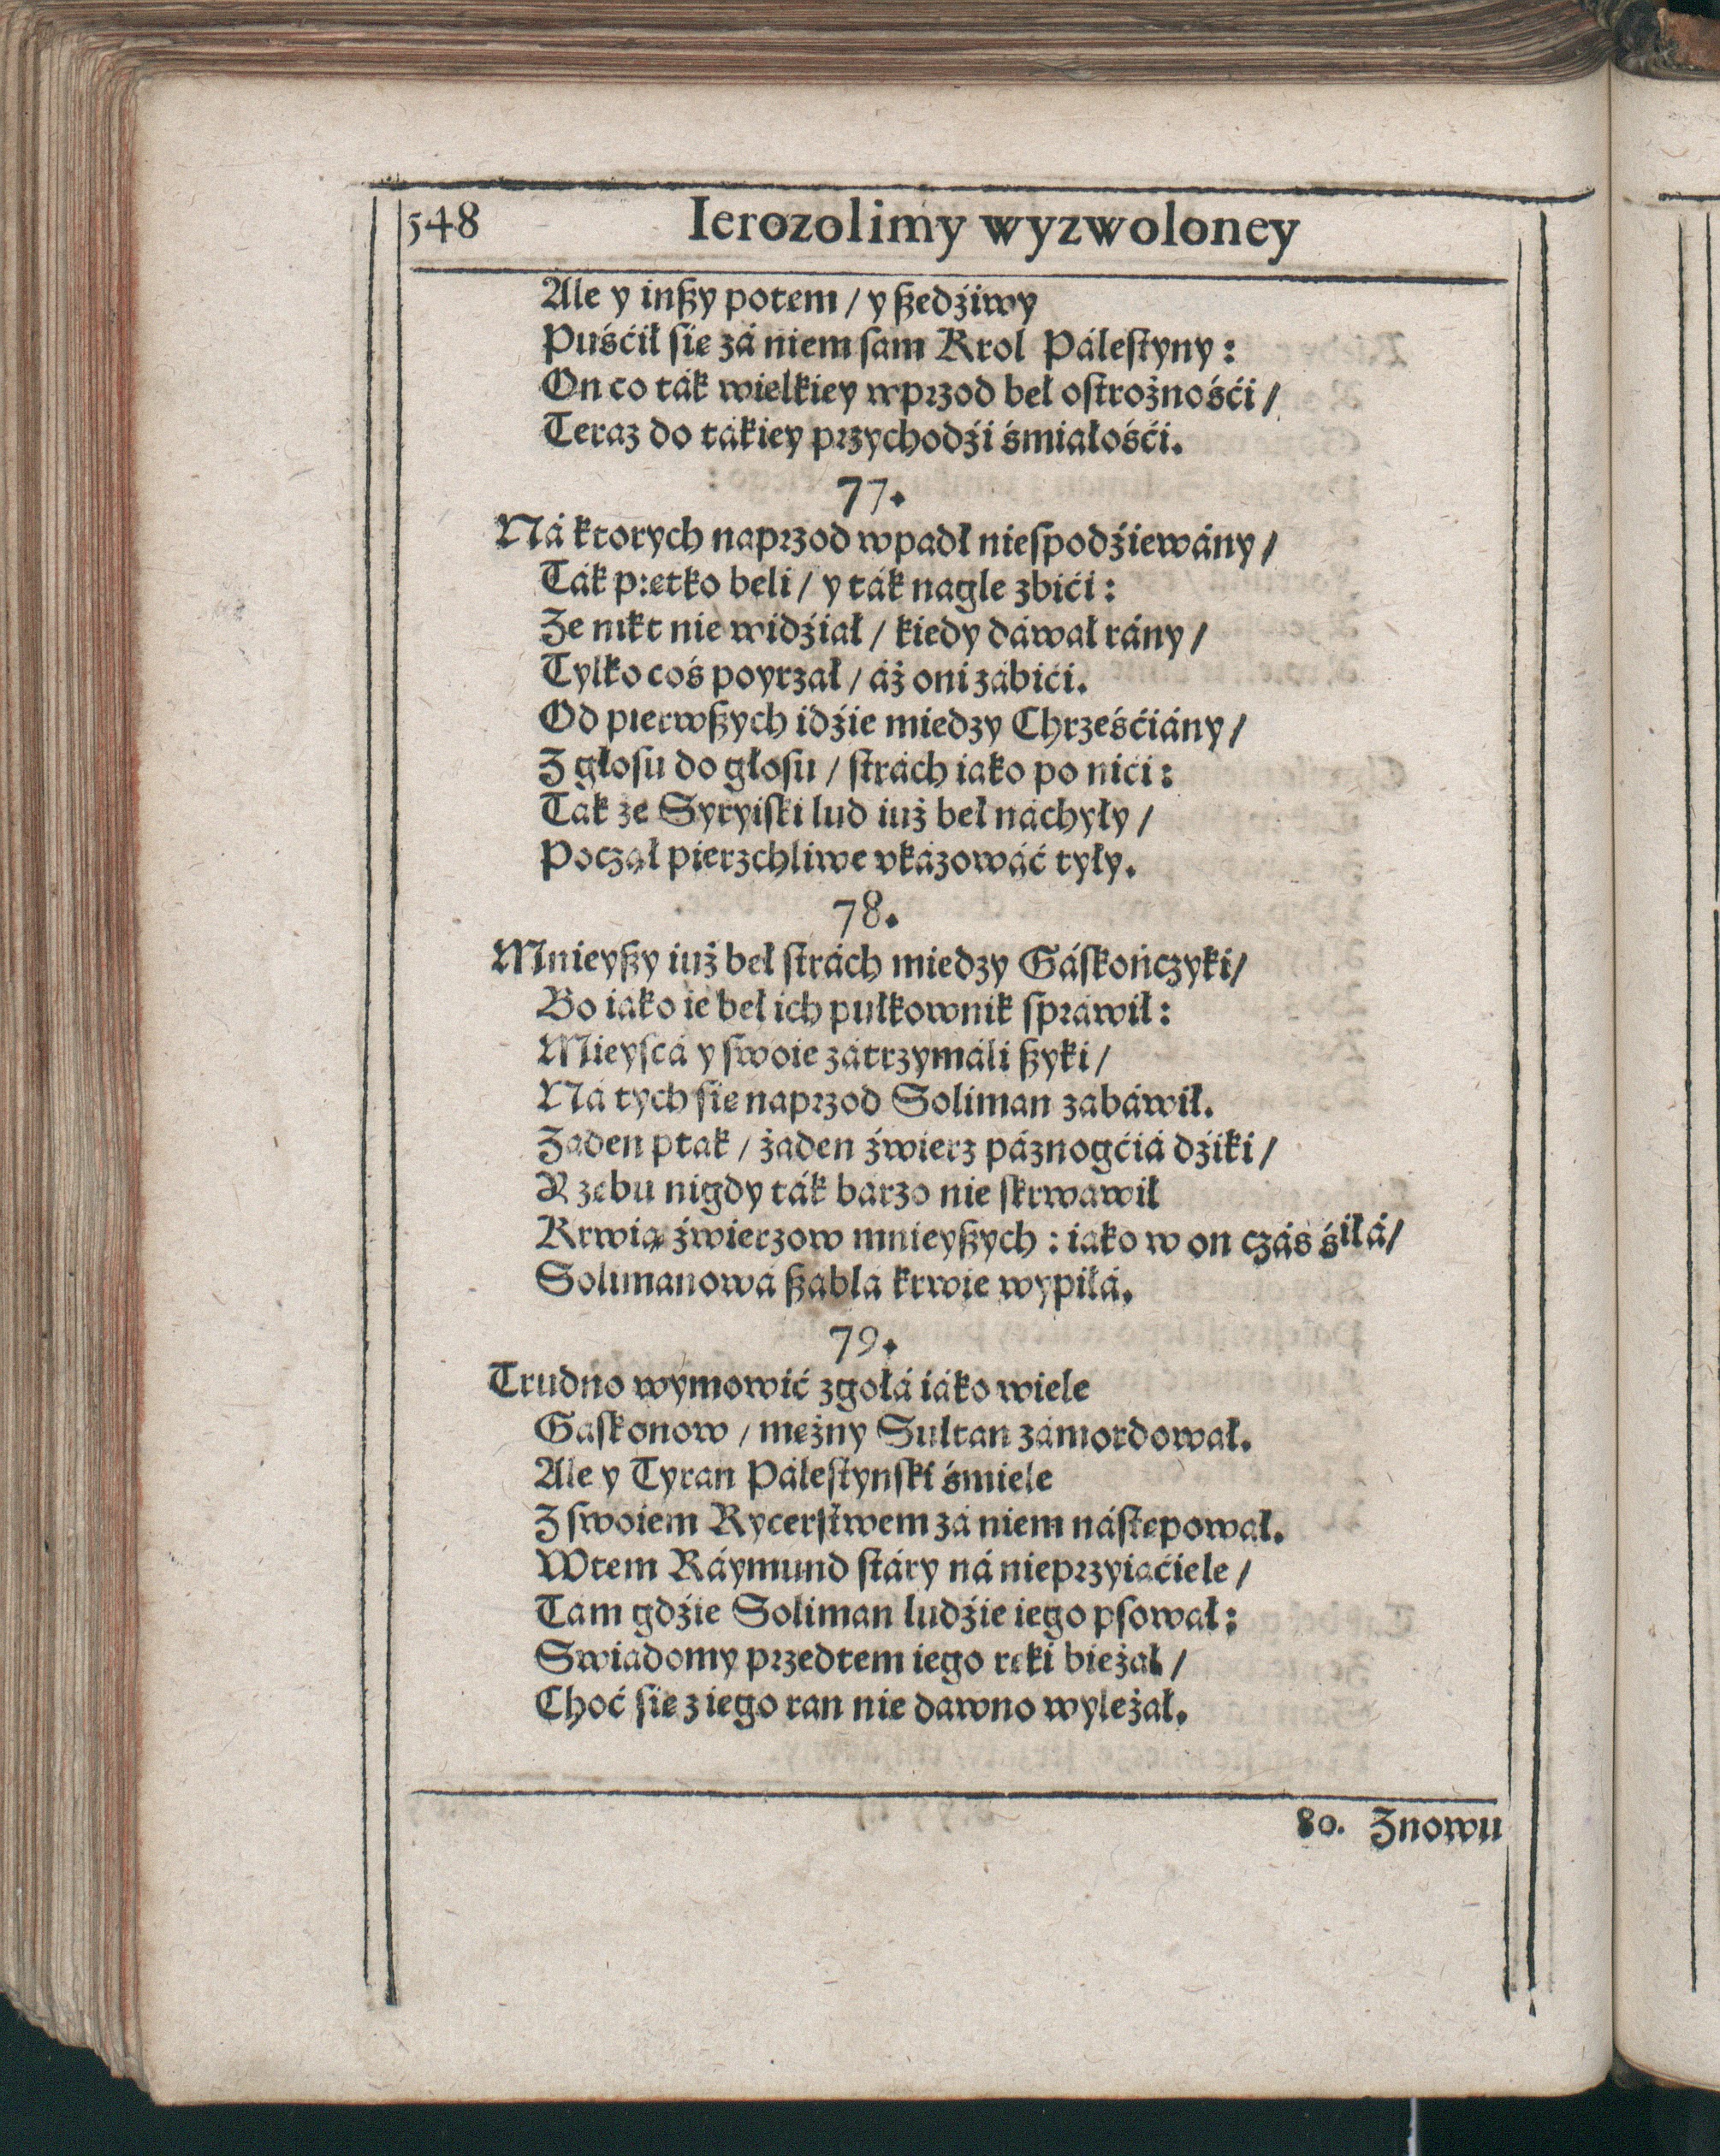 548 Ierozolimy wyzwoloney
Ale y inßy potem / y ßedźiwy
Puśćił się zá niem sam Krol Pálestyny :
On co ták wielkiey wprzod beł ostrożnośći /
Teraz do tákiey przychodźi śmiałośći.
77.
Ná ktorych naprzod wpadł niespodźiewány /
Ták prętko beli / y ták nagle zbići :
Ze nikt nie widźiał / kiedy dáwał rány /
Tylko coś poyrzał / áż oni zábići.
Od pierwßych idźie miedzy Chrześćiány /
Z głosu do głosu / strách iako po nići :
Tak że Syryiski lud iuż beł náchyły /
Począł pierzchliwe vkázowáć tyły.
78.
Mnieyßy iuż beł strách miedzy Gáskończyki /
Bo iako ie beł ich pułkownik spráwił :
Mieyscá y swoie zátrzymáli ßyki /
Ná tych się naprzod Soliman zabáwił.
Zaden ptak / żaden źwierz páznogćiá dźiki /
Rzebu nigdy ták bárzo nie skrwáwił
Krwią źwierzow mnieyßych : iako w on czás śiłá /
Solimanowá ßablá krwie wypiłá.
79.
Trudno wymowić zgołá iáko wiele
Gaskonow / mężny Sultan zámordował.
Ale y Tyran Pálestynski śmiele
Z swoiem Rycerstwem zá niem nástępował.
Wtem Ráymund stáry ná nieprzyiaćiele /
Tam gdźie Soliman ludźie iego psował :
Swiadomy przedtem iego ręki bieżał /
Choć się z iego ran nie dawno wyleżał.
80. Znowu